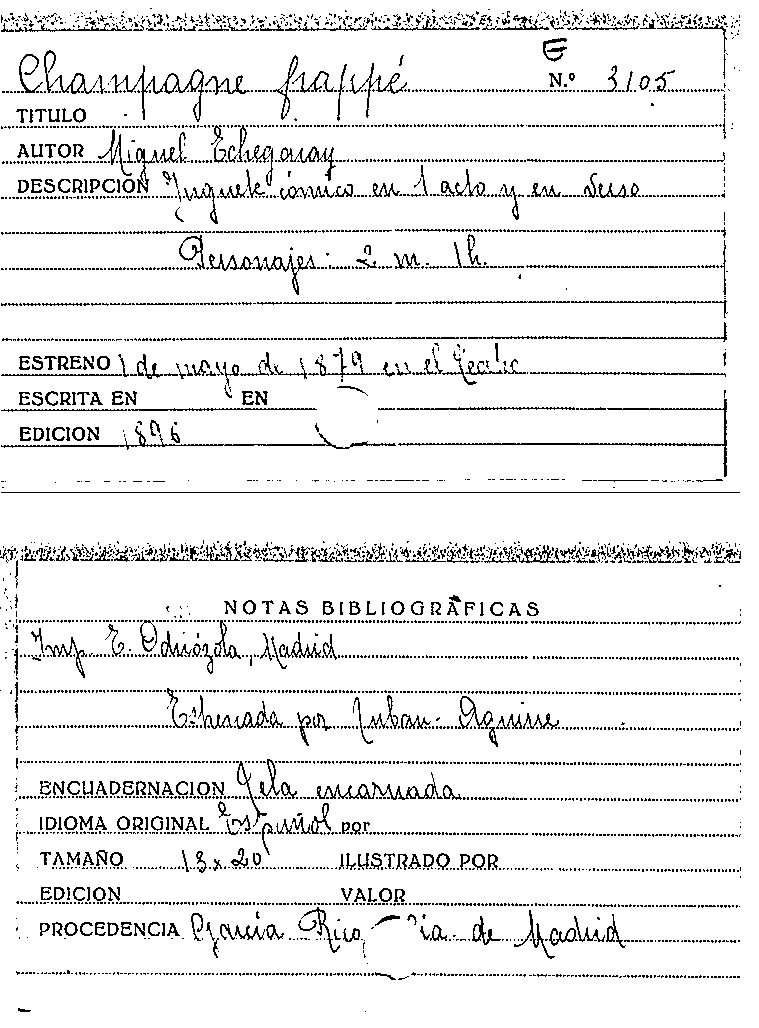 E
Champagne frappé N.º 3105
TITULO
AUTOR Miguel Echegaray
DESCRIPCION Juguete cómico en 1 acto y en verso
Personajes: 2 m. 1h.
ESTRENO 1 de mayo de 1879 en el Teatro
ESCRITA EN EN
EDICION 1896
NOTAS BIBLIOGRAFICAS
Imp. E. Odriózola, Madrid
Estrenada por
ENCUADERNACION Tela encarnada
IDIOMA ORIGINAL Español por
TAMAÑO 13 x 20 ILUSTRADO POR
EDICION VALOR
PROCEDENCIA García Rico, Cía. de Madrid